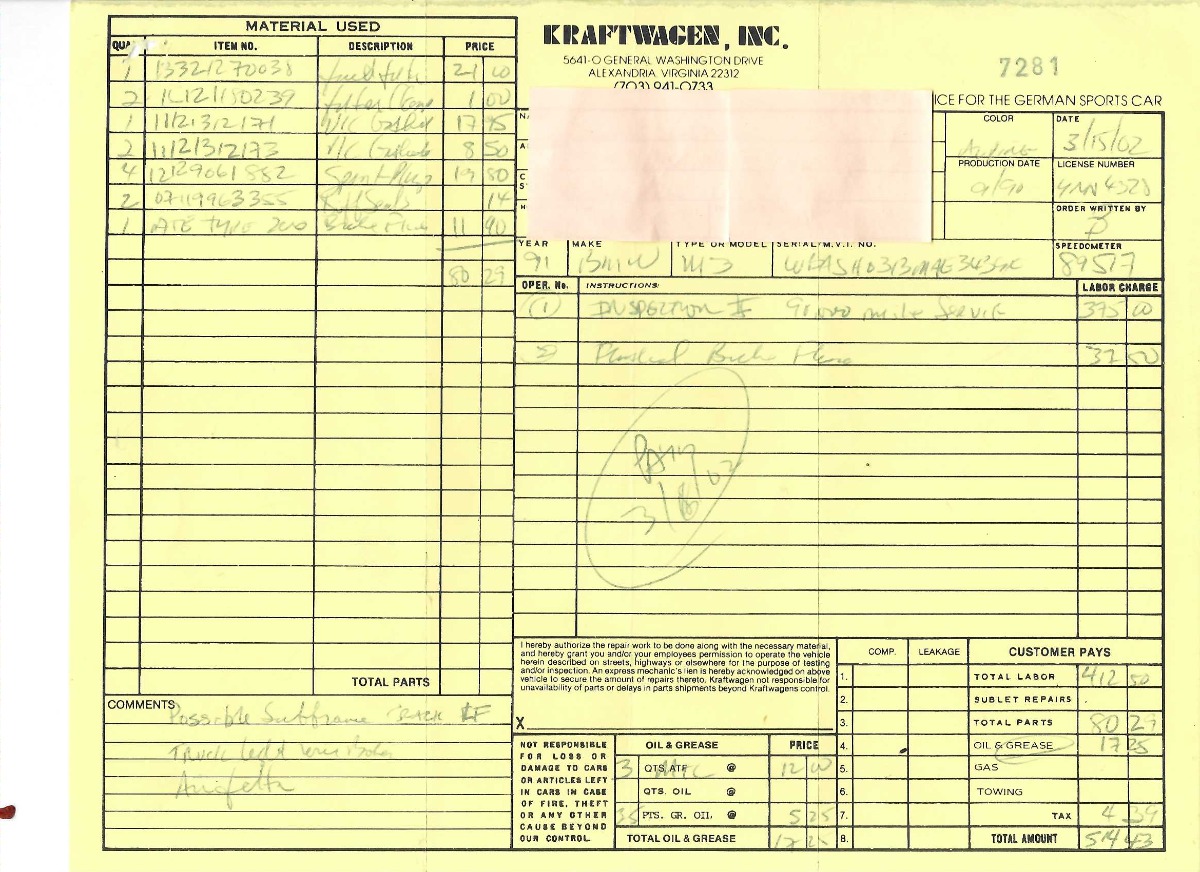 MATERIAL USED
ITEM NO. DESCRIPTION PRICE
1 13321270038 fuel filter 21 00
2 1 00
1 11121312171 V/C Gasket 17 95
2 11121312173 V/C Gaskets 8 50
4 12129061882 Spark Plugs 19 80
2 07119963355 14
1 ATE TYPE 200 Brake 11 90
80 29
TOTAL PARTS
COMMENTS
Possible Subframe CRACK LF
KRAFTWAGEN, INC.
5641-O GENERAL WASHINGTON DRIVE
ALEXANDRIA VIRGINIA 22312
(703) 941-0733
7281
ICE FOR THE GERMAN SPORTS CAR
COLOR
DATE
3/15/02
PRODUCTION DATE
9/90
LICENSE NUMBER
ORDER WRITTEN BY
YEAR MAKE TYPE OR MODEL SERIAL/M.V.I. NO. SPEEDOMETER
91 BMW M3 89517
OPER. No. INSTRUCTIONS: LABOR CHARGE
(1) INSPECTION II 90,000 mile SERVICE 375 00
37 50
I hereby authorize the repair work to be done along with the necessary material,
and hereby grant you and/or your employees permission to operate the vehicle
herein described on streets, highways or elsewhere for the purpose of testing
and/or inspection. An express mechanic's lien is hereby acknowledged on above
vehicle to secure the amount of repairs thereto. Kraftwagen not responsible for
unavailability of parts or delays in parts shipments beyond Kraftwagens control.
X
NOT RESPONSIBLE
FOR LOSS OR
DAMAGE TO CARS
OR ARTICLES LEFT
IN CARS IN CASE
OF FIRE, THEFT
OR ANY OTHER
CAUSE BEYOND
OUR CONTROL.
OIL & GREASE PRICE
3 QTS ATF @ 12 00
QTS. OIL @
PTS. GR. OIL @ 5 25
TOTAL OIL & GREASE 17 25
COMP. LEAKAGE
1.
2.
3.
4.
5.
6.
7.
8.
CUSTOMER PAYS
TOTAL LABOR 412 50
SUBLET REPAIRS
TOTAL PARTS 80 29
OIL & GREASE 17 25
GAS
TOWING
TAX 4 39
TOTAL AMOUNT 514 43